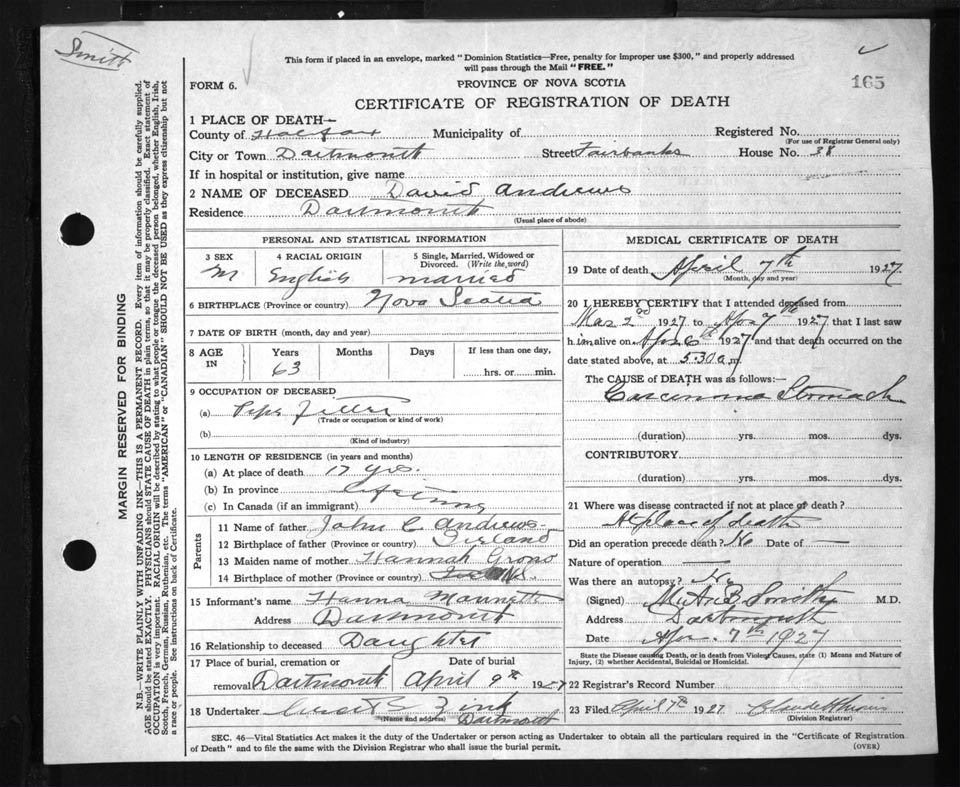 Smith
This form if placed in an envelope, marked "Dominion Statistics—Free, penalty for improper use $300," and properly addressed
will pass through the Mail "FREE."
165
FORM 6.
PROVINCE OF NOVA SCOTIA
CERTIFICATE OF REGISTRATION OF DEATH
1 PLACE OF DEATH—
County of Halifax Municipality of Registered No.
(For use of Registrar General only)
City or Town Dartmouth Street Fairbanks House No. 38
If in hospital or institution, give name
2 NAME OF DECEASED David Andrews
Residence Dartmouth
(Usual place of abode)
PERSONAL AND STATISTICAL INFORMATION
3 SEX 4 RACIAL ORIGIN 5 Single, Married, Widowed or
Divorced. (Write the word)
M English married
6 BIRTHPLACE (Province or country) Nova Scotia
7 DATE OF BIRTH (month, day and year)
8 AGE IN Years Months Days If less than one day,
63 hrs. or min.
9 OCCUPATION OF DECEASED
(a) Pipe Fitter
(Trade or occupation or kind of work)
(b)
(Kind of industry)
10 LENGTH OF RESIDENCE (in years and months)
(a) At place of death 17 yrs.
(b) In province Lifetime
(c) In Canada (if an immigrant)
Parents
11 Name of father John C Andrews
12 Birthplace of father (Province or country) Ireland
13 Maiden name of mother Hannah
14 Birthplace of mother (Province or country)
15 Informant's name Hanna
Address Dartmouth
16 Relationship to deceased Daughter
17 Place of burial, cremation or Date of burial
removal Dartmouth April 9th 1927
18 Undertaker Zink
(Name and address) Dartmouth
MEDICAL CERTIFICATE OF DEATH
19 Date of death April 7th 1927
(Month, day and year)
20 I HEREBY CERTIFY that I attended deceased from
Mar 2nd 1927 to Apr 7th 1927 that I last saw
him alive on Apr 6th 1927 and that death occurred on the
date stated above, at 5.30 a.m.
The CAUSE of DEATH was as follows:—
Carcinoma Stomach
(duration) yrs. mos. dys.
CONTRIBUTORY
(duration) yrs. mos. dys.
21 Where was disease contracted if not at place of death?
At place of death
Did an operation precede death? No Date of —
Nature of operation —
Was there an autopsy? No
(Signed) Smith M.D.
Address Dartmouth
Date Apr. 7th 1927
State the Disease causing Death, or in death from Violent Causes, state (1) Means and Nature of
Injury, (2) whether Accidental, Suicidal or Homicidal.
22 Registrar's Record Number
23 Filed April 1927
(Division Registrar)
SEC. 46—Vital Statistics Act makes it the duty of the Undertaker or person acting as Undertaker to obtain all the particulars required in the "Certificate of Registration
of Death" and to file the same with the Division Registrar who shall issue the burial permit.
(OVER)
MARGIN RESERVED FOR BINDING
N.B.—WRITE PLAINLY WITH UNFADING INK—THIS IS A PERMANENT RECORD. Every item of information should be carefully supplied.
AGE should be stated EXACTLY. PHYSICIANS should STATE CAUSE OF DEATH in plain terms, so that it may be properly classified. Exact statement of
OCCUPATION is very important. RACIAL ORIGIN will be described by stating to what people or tongue the deceased person belonged, whether English, Irish,
Scotch, French, German, Russian, Ruthenian, etc. The terms "AMERICAN" or "CANADIAN" SHOULD NOT BE USED as they express citizenship but not
a race of people. See instructions on back of Certificate.